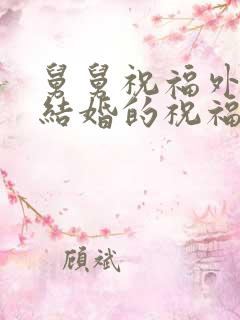 舅舅祝福外
結婚的祝福
顾斌